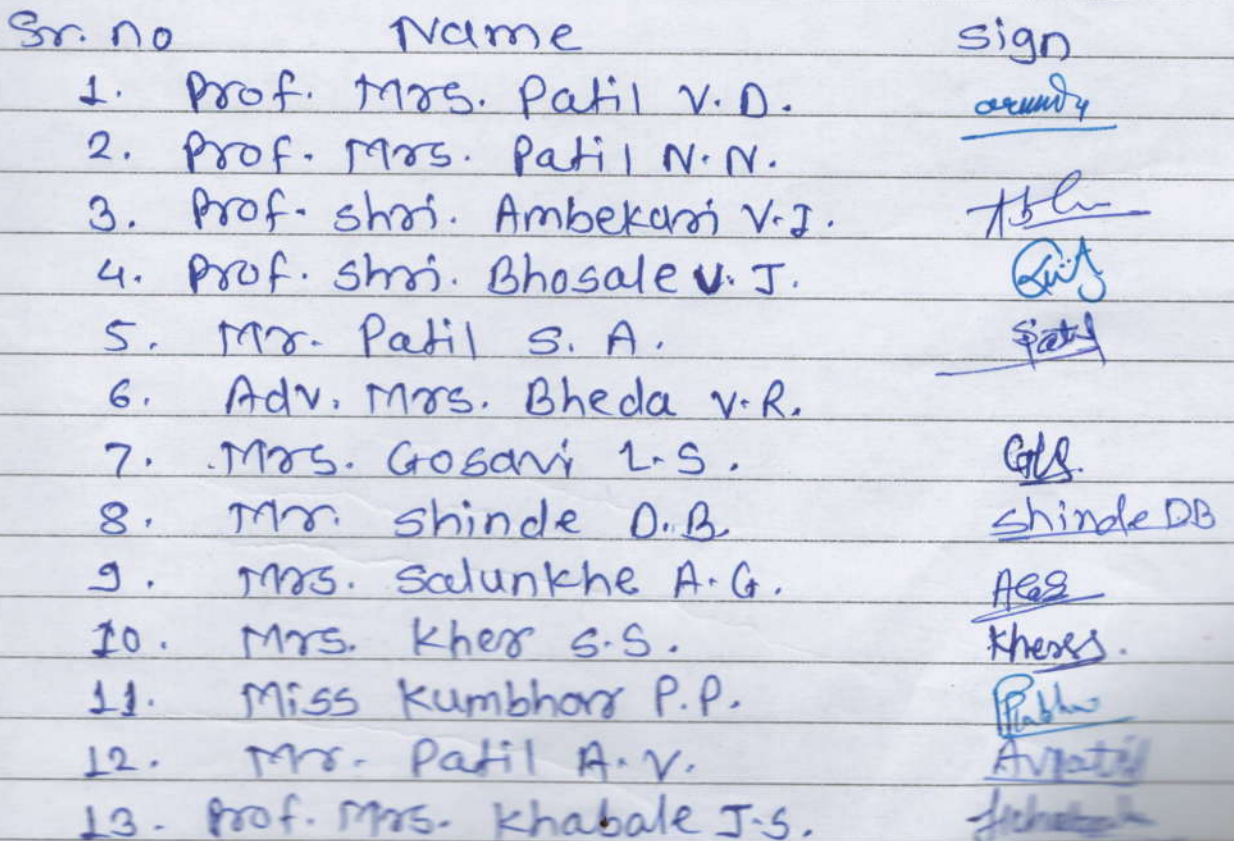 Sr. no Name sign
1. Prof. Mrs. Patil V.D.
2. Prof. Mrs. Patil N.N.
3. Prof. shri. Ambekari V.J.
4. Prof. shri. Bhosale V. J.
5. Mr. Patil S. A. Patil
6. Adv. Mrs. Bheda V.R.
7. Mrs. Gosavi L.S. GLS.
8. Mr. shinde D.B. shinde DB
9. Mrs. Salunkhe A.G. AGS
10. Mrs. Kher S.S. Kherss.
11. Miss Kumbhar P.P.
12. Mr. Patil A.V. Avpatil
13. Prof. Mrs. Khabale J.S.